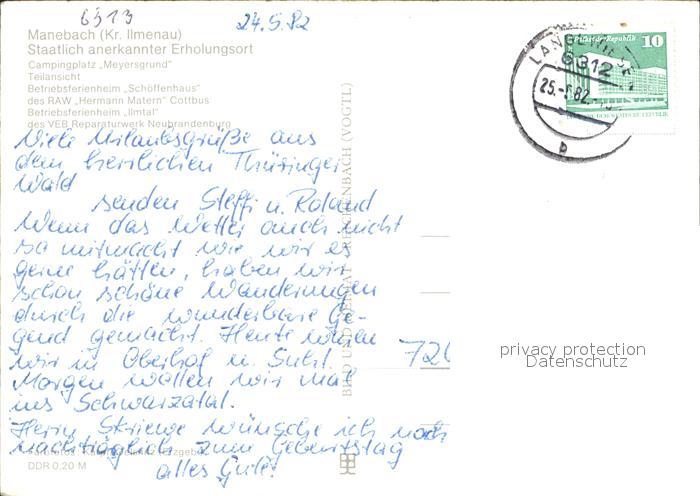 6513
24.5.82
Manebach (Kr. Ilmenau)
Staatlich anerkannter Erholungsort
Campingplatz „Meyersgrund"
Teilansicht
Betriebsferienheim „Schöffenhaus"
des RAW „Hermann Matern" Cottbus
Betriebsferienheim „Ilmtal"
des VEB Reparaturwerk Neubrandenburg
Viele Urlaubsgrüße aus
dem herrlichen Thüringer
Wald
senden Steffi u. Roland
Wenn das Wetter auch nicht
so mitmacht wie wir es
gerne hätten, haben wir
schon schöne Wanderungen
durch die wunderbare Ge-
gend gemacht. Heute waren
wir in Oberhof u. Suhl.
Morgen wollen wir mal
ins Schwarzatal.
Herrn Skriewe wünsche ich noch
nachträglich zum Geburtstag
alles Gute!
DDR 0,20 M
BILD UND HEIMAT REICHENBACH (VOGTL)
6312
25.-5.82
b
Palast der Republik
10
DEUTSCHE DEMOKRATISCHE REPUBLIK
72
privacy protection
Datenschutz